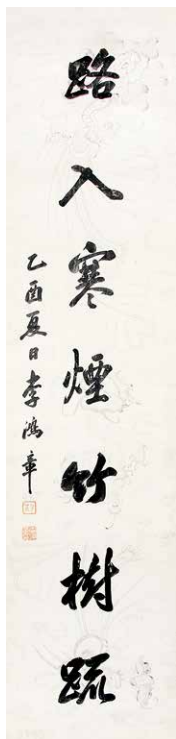 路入寒煙竹樹疏
乙酉夏日李鴻章